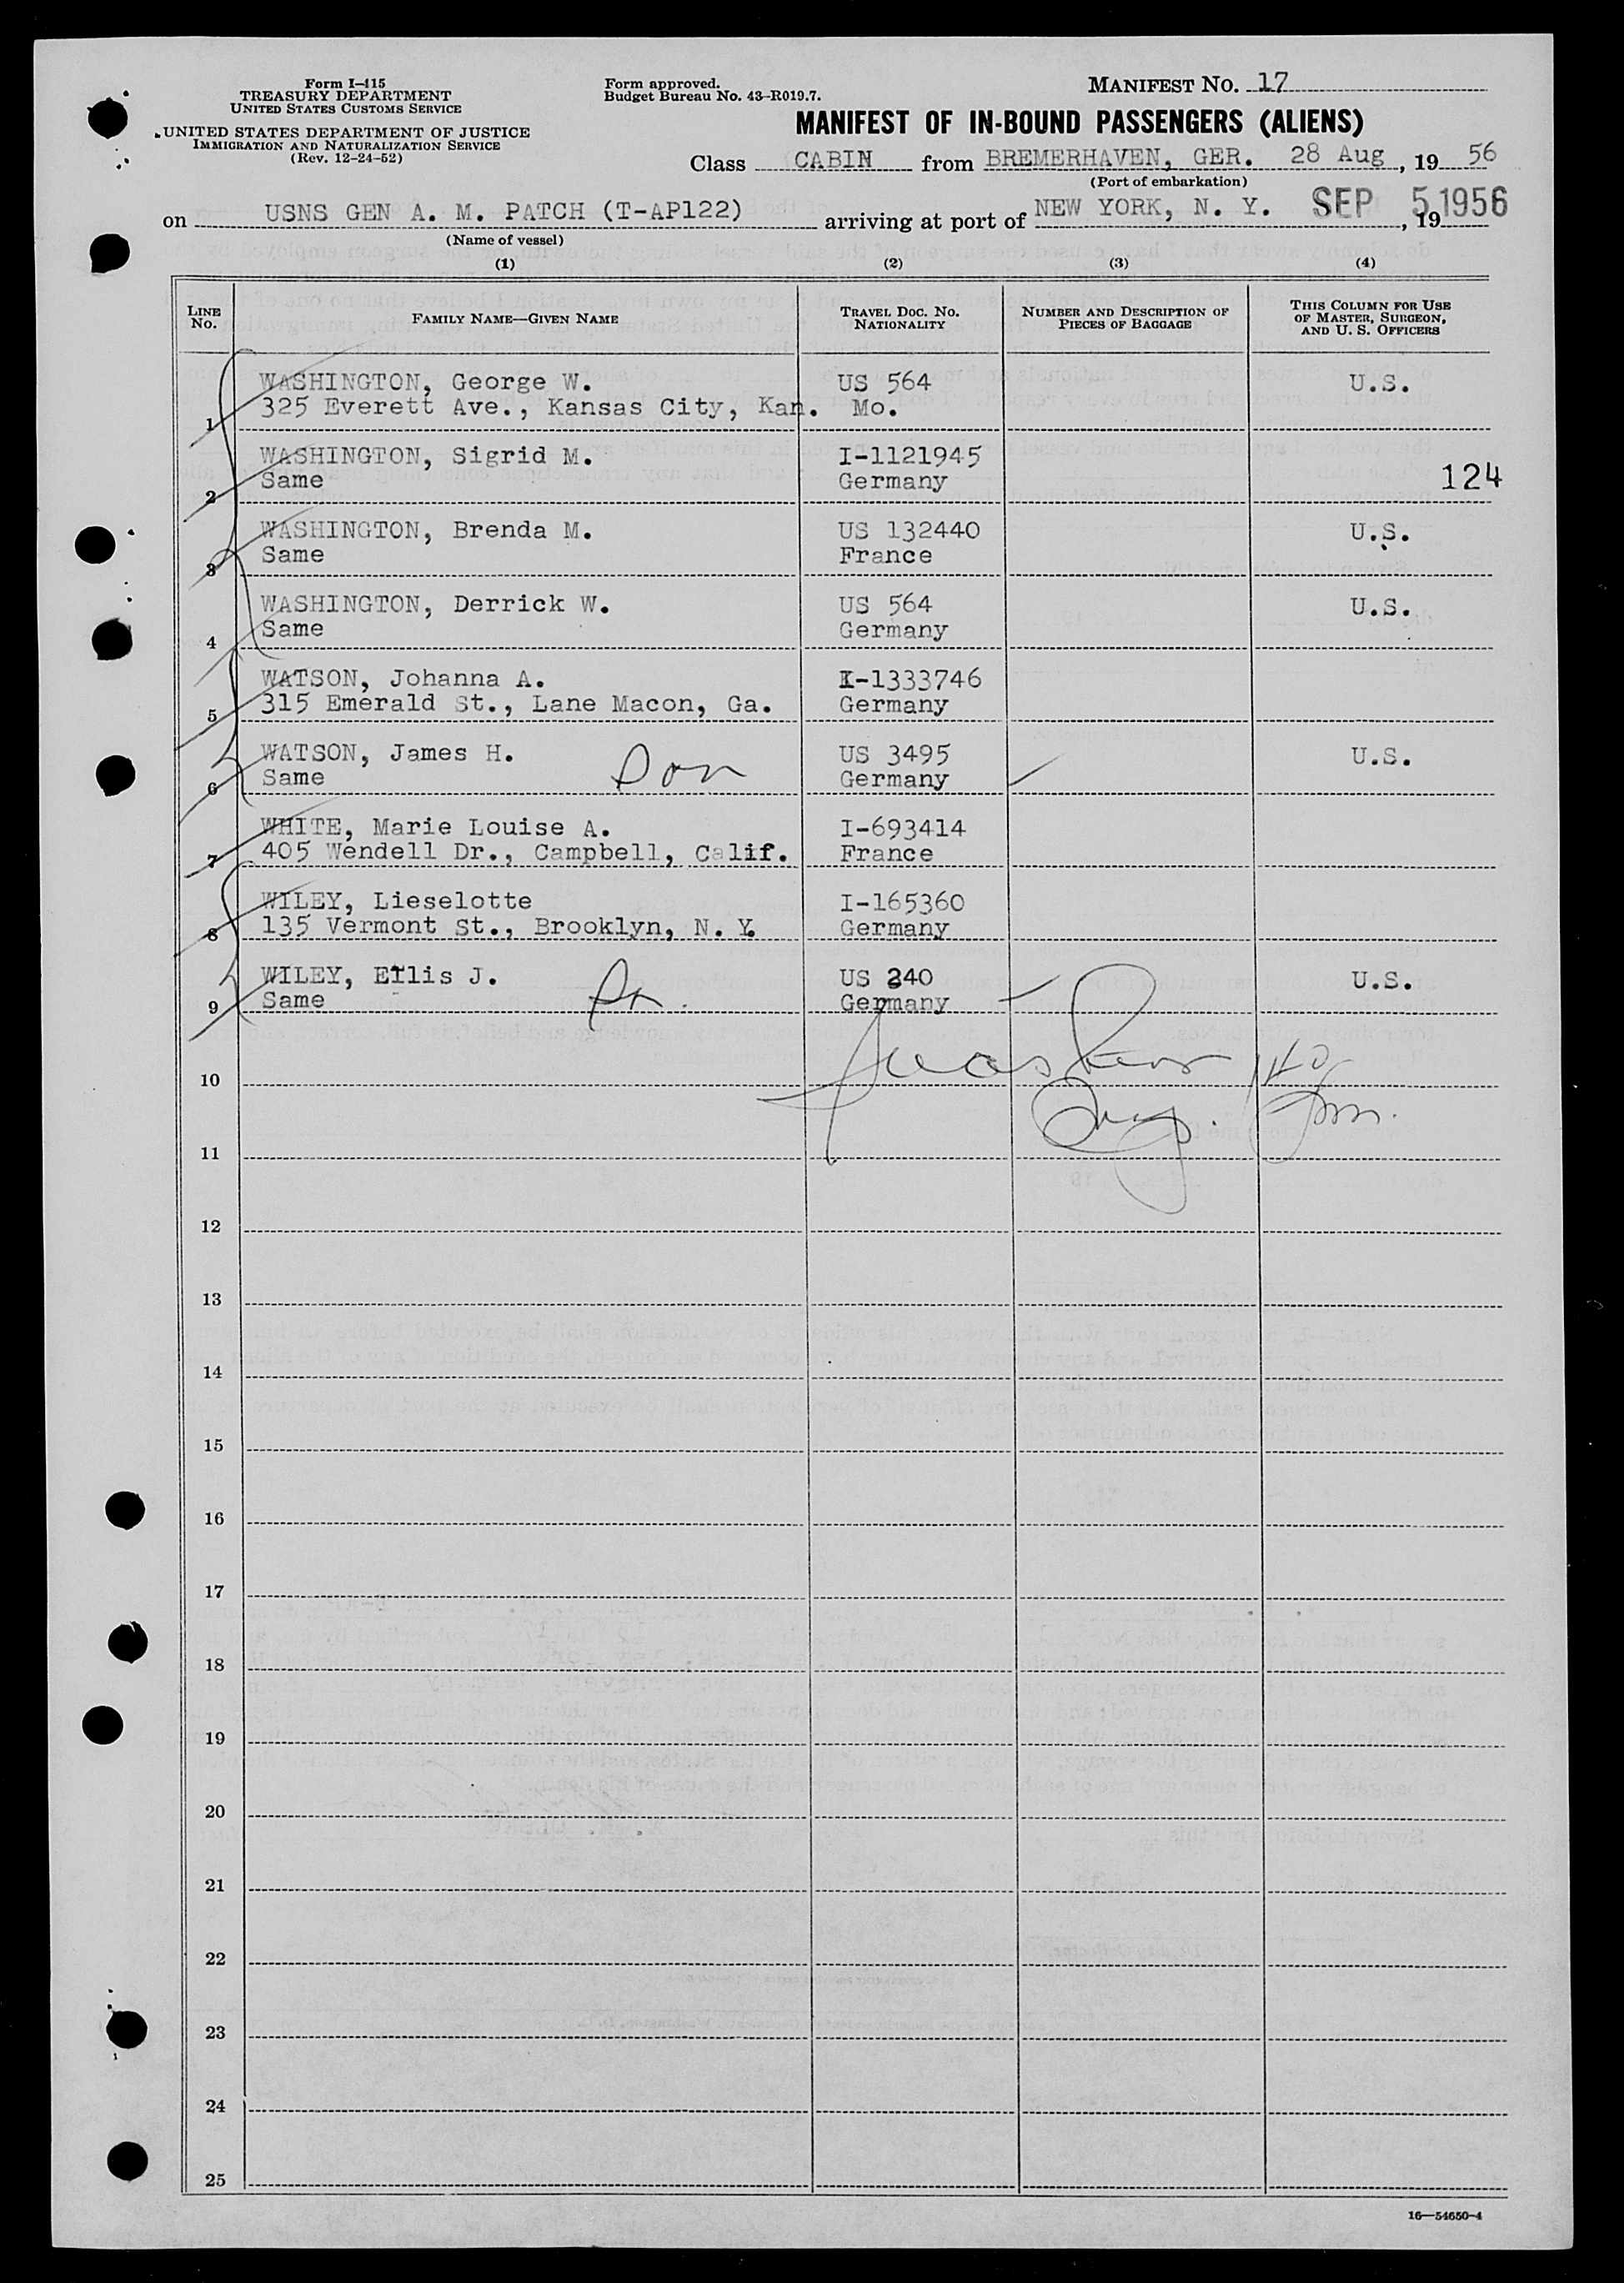 Form I-415
TREASURY DEPARTMENT
UNITED STATES CUSTOMS SERVICE
UNITED STATES DEPARTMENT OF JUSTICE
IMMIGRATION AND NATURALIZATION SERVICE
(Rev. 12-24-52)
Form approved.
Budget Bureau No. 43-R019.7.
MANIFEST NO. 17
MANIFEST OF IN-BOUND PASSENGERS (ALIENS)
Class CABIN from BREMERHAVEN, GER. 28 Aug, 19 56
(Port of embarkation)
on USNS GEN A. M. PATCH (T-AP122) arriving at port of NEW YORK, N. Y. SEP 5 1956, 19
(Name of vessel)
(1) (2) (3) (4)
LINE No. FAMILY NAME—GIVEN NAME TRAVEL DOC. NO. NATIONALITY NUMBER AND DESCRIPTION OF PIECES OF BAGGAGE THIS COLUMN FOR USE OF MASTER, SURGEON, AND U. S. OFFICERS
WASHINGTON, George W. US 564 U.S.
1 325 Everett Ave., Kansas City, Kan. Mo.
WASHINGTON, Sigrid M. I-1121945
2 Same Germany 124
WASHINGTON, Brenda M. US 132440 U.S.
3 Same France
WASHINGTON, Derrick W. US 564 U.S.
4 Same Germany
WATSON, Johanna A. I-1333746
5 315 Emerald St., Lane Macon, Ga. Germany
WATSON, James H. US 3495 U.S.
6 Same Son Germany
WHITE, Marie Louise A. I-693414
7 405 Wendell Dr., Campbell, Calif. France
WILEY, Lieselotte I-165360
8 135 Vermont St., Brooklyn, N. Y. Germany
WILEY, Ellis J. US 240 U.S.
9 Same Germany
10
11
12
13
14
15
16
17
18
19
20
21
22
23
24
25
16—54650-4